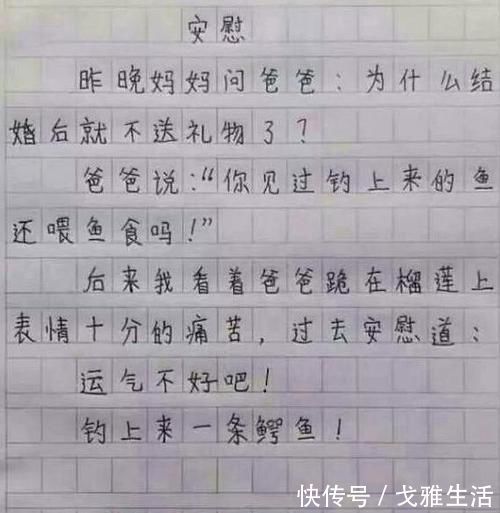 安慰
昨晚妈妈问爸爸：为什么结
婚后就不送礼物了？
爸爸说：“你见过钓上来的鱼
还喂鱼食吗！”
后来我看着爸爸跪在榴莲上
表情十分的痛苦，过去安慰道：
运气不好吧！
钓上来一条鳄鱼！
快传号／戈雅生活